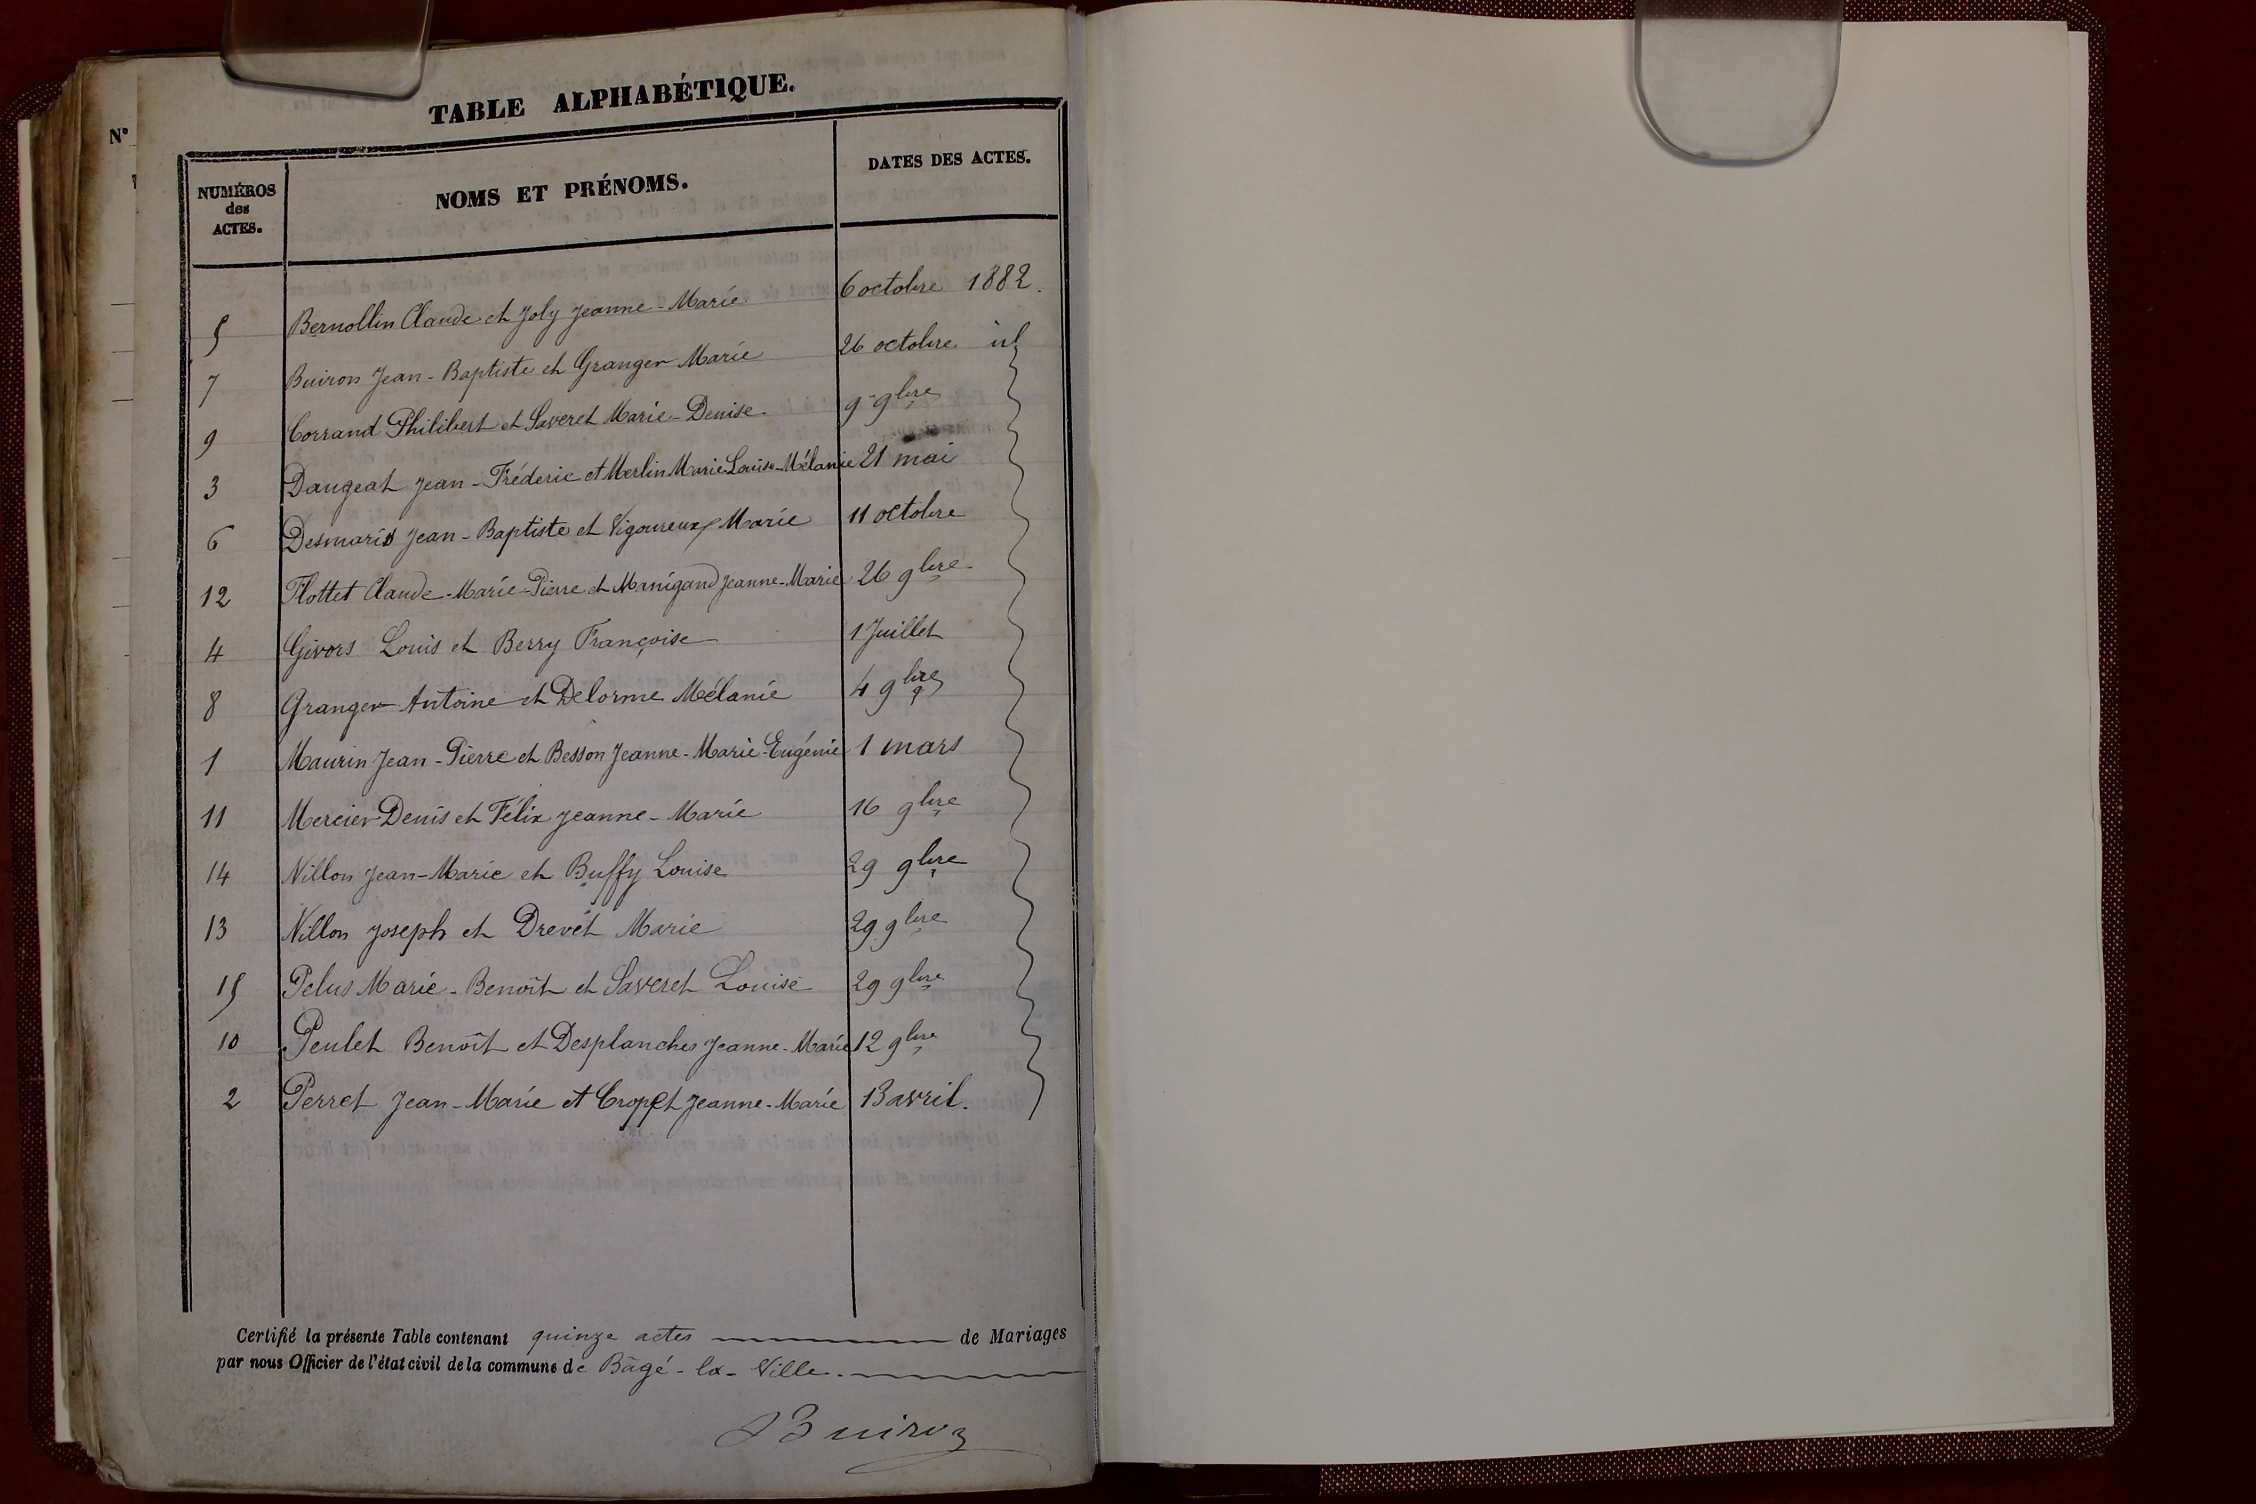 N°
TABLE ALPHABÉTIQUE.
NUMÉROS des ACTES. NOMS ET PRÉNOMS. DATES DES ACTES.
5 Bernollin Claude et Joly Jeanne-Marie 6 octobre 1882.
7 Buiron Jean-Baptiste et Granger Marie 26 octobre id
9 Corrand Philibert et Saveret Marie-Denise 9 9bre
3 Daugeat Jean-Fréderic et Merlin Marie Louise-Mélanie 21 mai
6 Desmaris Jean-Baptiste et Vigoureux Marie 11 octobre
12 Flottet Claude-Marie-Pierre et Manigand Jeanne-Marie 26 9bre
4 Givors Louis et Berry Françoise 1 Juillet
8 Granger Antoine et Delorme Mélanie 4 9bre
1 Maurin Jean-Pierre et Besson Jeanne-Marie-Eugénie 1 mars
11 Mercier Denis et Félix Jeanne-Marie 16 9bre
14 Nillon Jean-Marie et Buffy Louise 29 9bre
13 Nillon Joseph et Drevet Marie 29 9bre
15 Pelus Marie-Benoît et Saveret Louise 29 9bre
10 Peulet Benoît et Desplanches Jeanne-Marie 12 9bre
2 Perret Jean-Marie et Cropet Jeanne-Marie 13 avril.
Certifié la présente Table contenant quinze actes de Mariages
par nous Officier de l'état civil de la commune de Bâgé-la-Ville.
Buiron